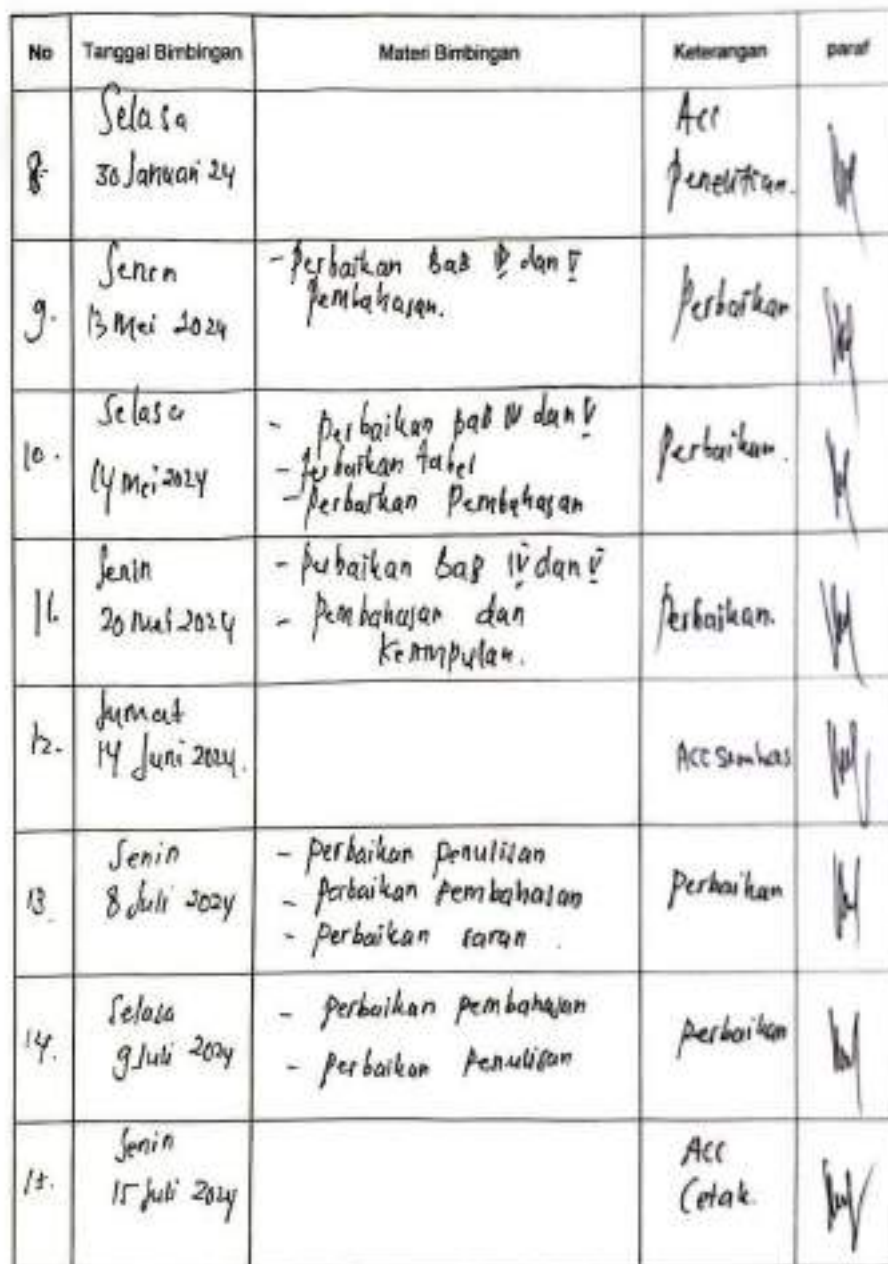 No Tanggal Bimbingan Materi Bimbingan Keterangan paraf
8. Selasa
30 Januari 24
Acc
Penelitian.
9. Senin
13 Mei 2024
- Perbaikan BAB IV dan V
Pembahasan.
Perbaikan
10. Selasa
14 Mei 2024
- Perbaikan BAB IV dan V
- Perbaikan tabel
- Perbaikan Pembahasan
Perbaikan.
11. Senin
20 Mei 2024
- Perbaikan BAB IV dan V
- Pembahasan dan
Kesimpulan.
Perbaikan.
12. Jumat
14 Juni 2024.
Acc Semhas
13. Senin
8 Juli 2024
- Perbaikan Penulisan
- Perbaikan Pembahasan
- Perbaikan saran.
Perbaikan
14. Selasa
9 Juli 2024
- Perbaikan pembahasan
- Perbaikan Penulisan
Perbaikan
15. Senin
15 Juli 2024
Acc
Cetak.